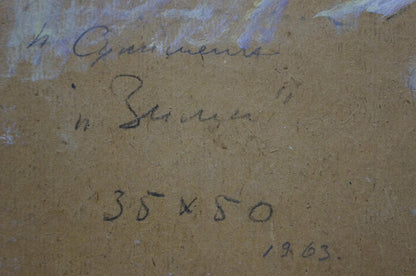 „ Зима "
35 x 50
1963.